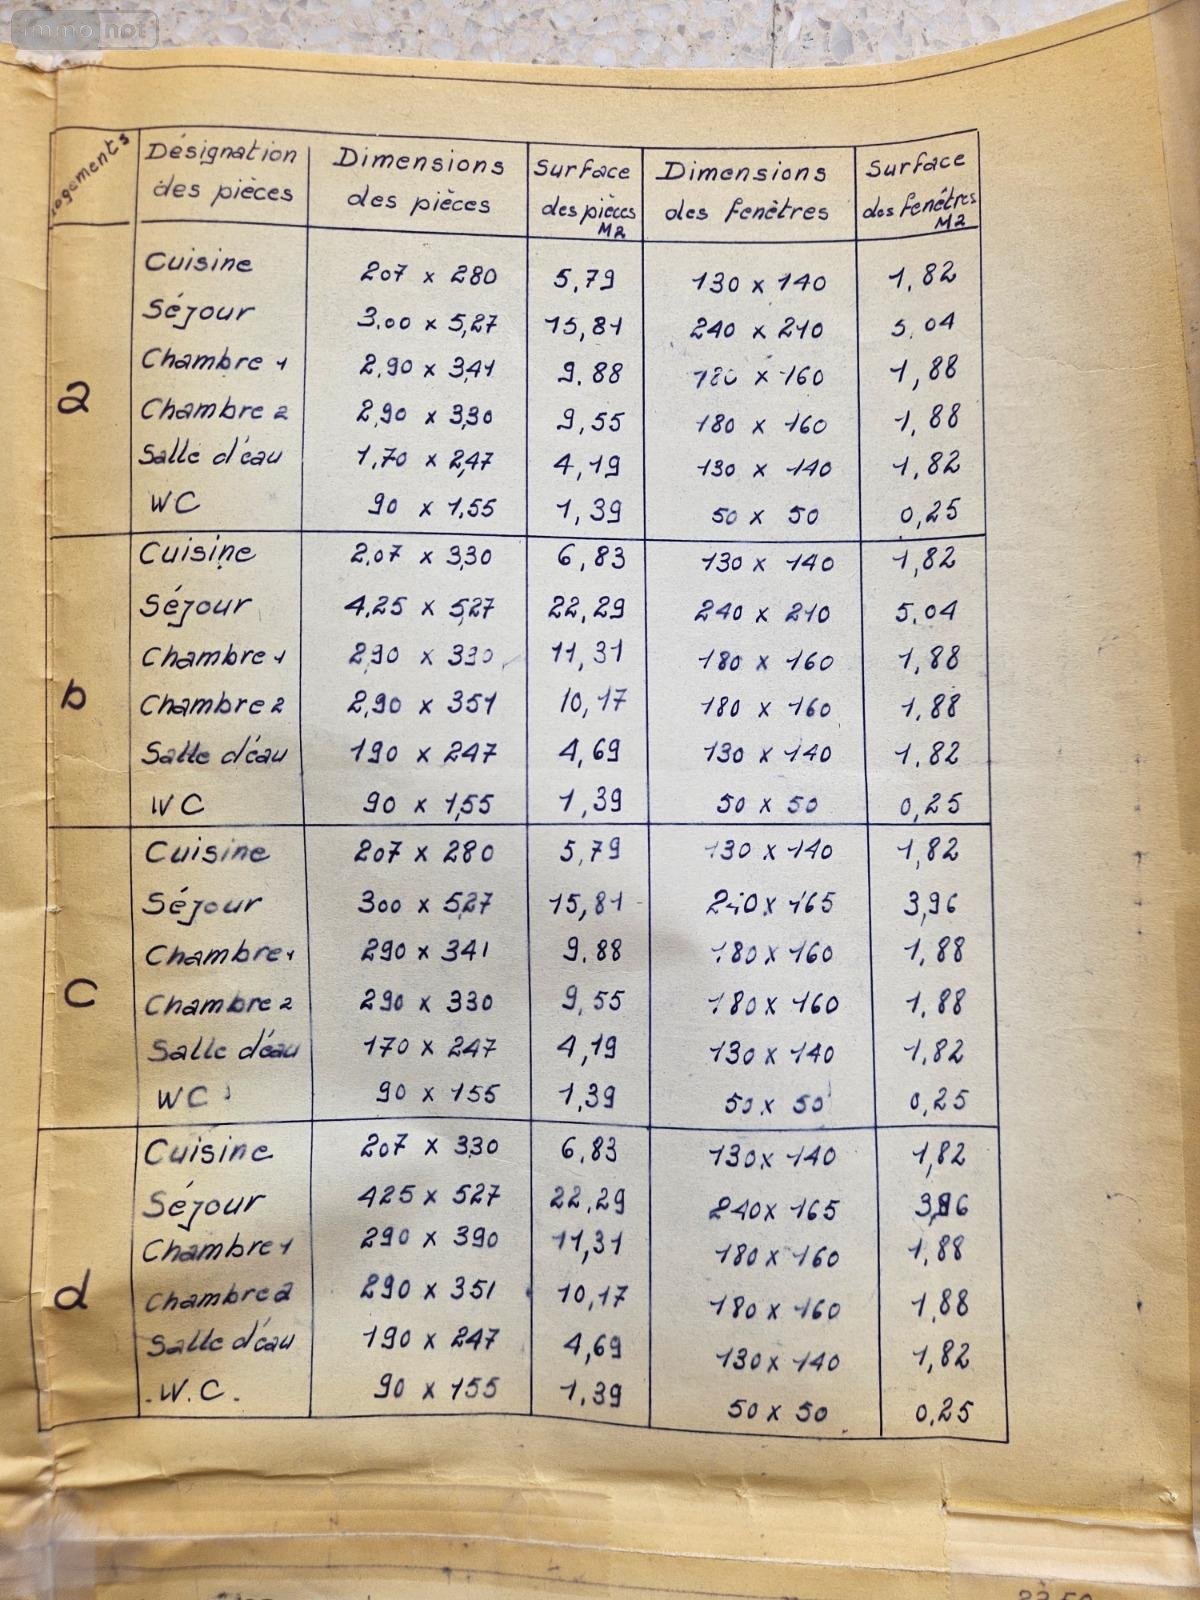 immo not
logements | Désignation des pièces | Dimensions des pièces | Surface des pièces M2 | Dimensions des fenêtres | Surface des fenêtres M2
a
Cuisine 207 x 280 5,79 130 x 140 1,82
Séjour 3.00 x 5,27 15,81 240 x 210 5.04
Chambre 1 2,90 x 3,41 9.88 180 x 160 1,88
Chambre 2 2,90 x 3,30 9,55 180 x 160 1,88
Salle d'éau 1,70 x 2,47 4,19 130 x 140 1,82
WC 90 x 1,55 1,39 50 x 50 0,25
b
Cuisine 2,07 x 3,30 6,83 130 x 140 1,82
Séjour 4,25 x 5,27 22,29 240 x 210 5.04
Chambre 1 2,90 x 11,31 180 x 160 1,88
Chambre 2 2,90 x 351 10,17 180 x 160 1,88
Salle d'éau 190 x 247 4,69 130 x 140 1,82
WC 90 x 1,55 1,39 50 x 50 0,25
C
Cuisine 207 x 280 5,79 130 x 140 1,82
Séjour 300 x 5,27 15,81 240 x 165 3,96
Chambre 1 290 x 341 9.88 180 x 160 1,88
Chambre 2 290 x 330 9,55 180 x 160 1,88
Salle d'éau 170 x 247 4,19 130 x 140 1,82
WC 90 x 155 1,39 50 x 50 0,25
d
Cuisine 207 x 330 6,83 130 x 140 1,82
Séjour 425 x 527 22,29 240 x 165 3,96
Chambre 1 290 x 390 11,31 180 x 160 1,88
Chambre 2 290 x 351 10,17 180 x 160 1,88
Salle d'éau 190 x 247 4,69 130 x 140 1,82
W.C. 90 x 155 1,39 50 x 50 0,25